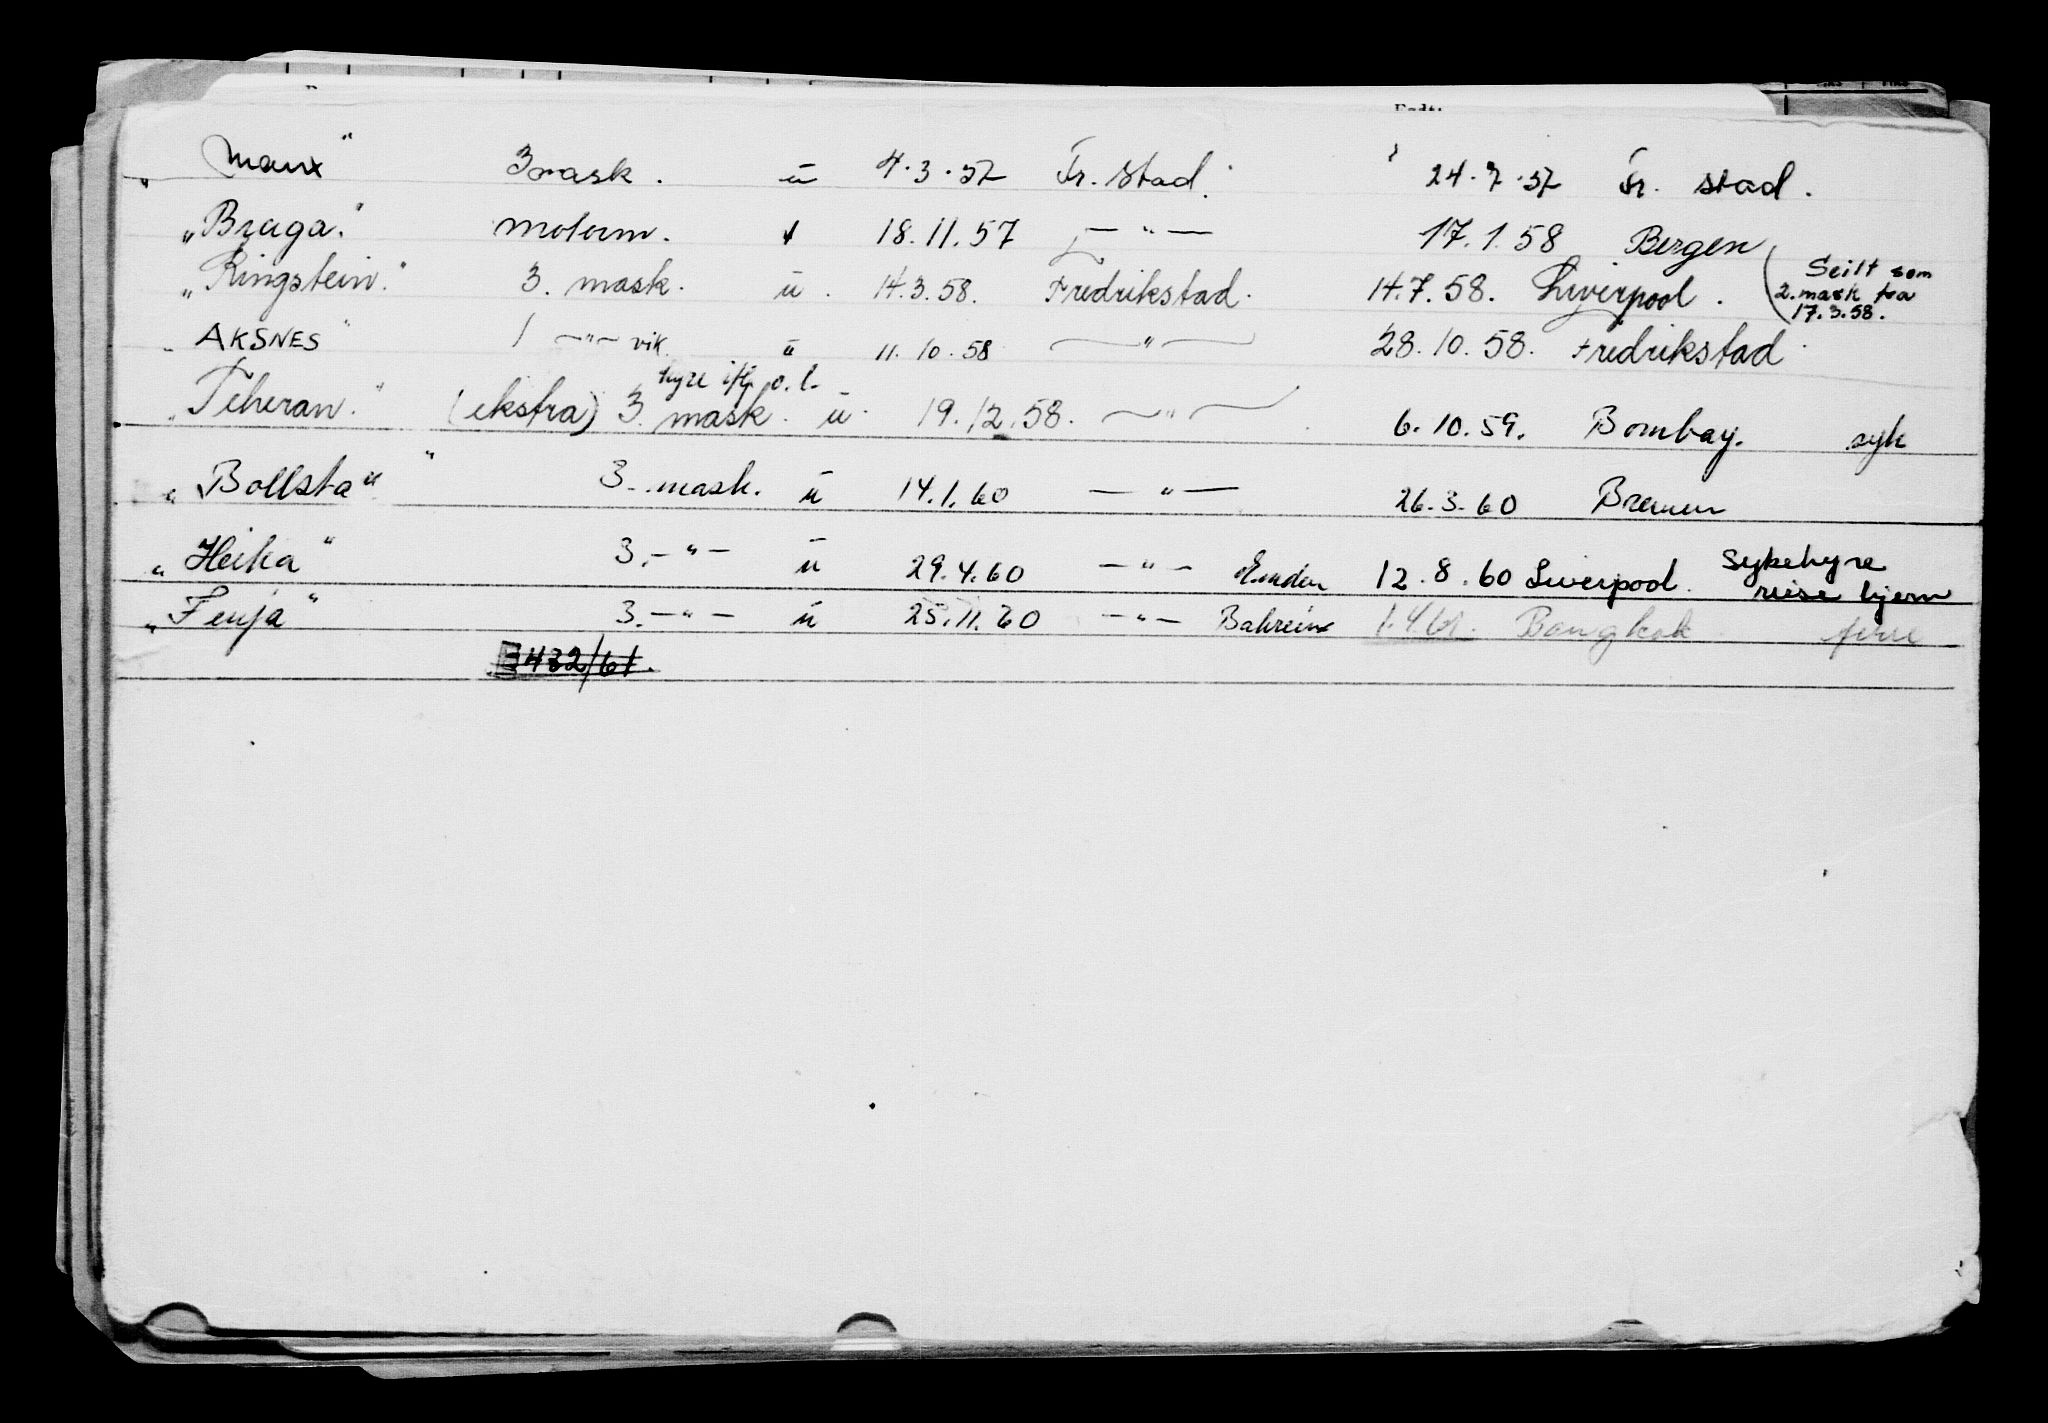 „ Manx" 3 mask. u 4.3.57 Fr.stad. 24.7.57 Fr. stad.
„Braga." motorm. 18.11.57 — " — 17.1.58 Bergen
„Ringstein." 3. mask. u. 14.3.58. Fredrikstad. 14.7.58. Liverpool. (Seilt som
2. mask fra
17.3.58.
„ AKSNES" 1 — " — vik. u 11.10.58 — " — 28.10.58. Fredrikstad
hyre iflg. o.l.
„Teheran." (ekstra) 3. mask. u. 19.12.58. — " — 6.10.59. Bombay. syk
„ Bollsta" 3. mask. u 14.1.60 — " — 26.3.60 Bremen
„ Heika" 3. — " — u 29.4.60 — " — Emden 12.8.60 Liverpool. Sykehyre
reise hjem
„Fenja" 3. — " — u 25.11.60 — " — Bahrein 1.4.61. Bangkok ferie
E 432/61.